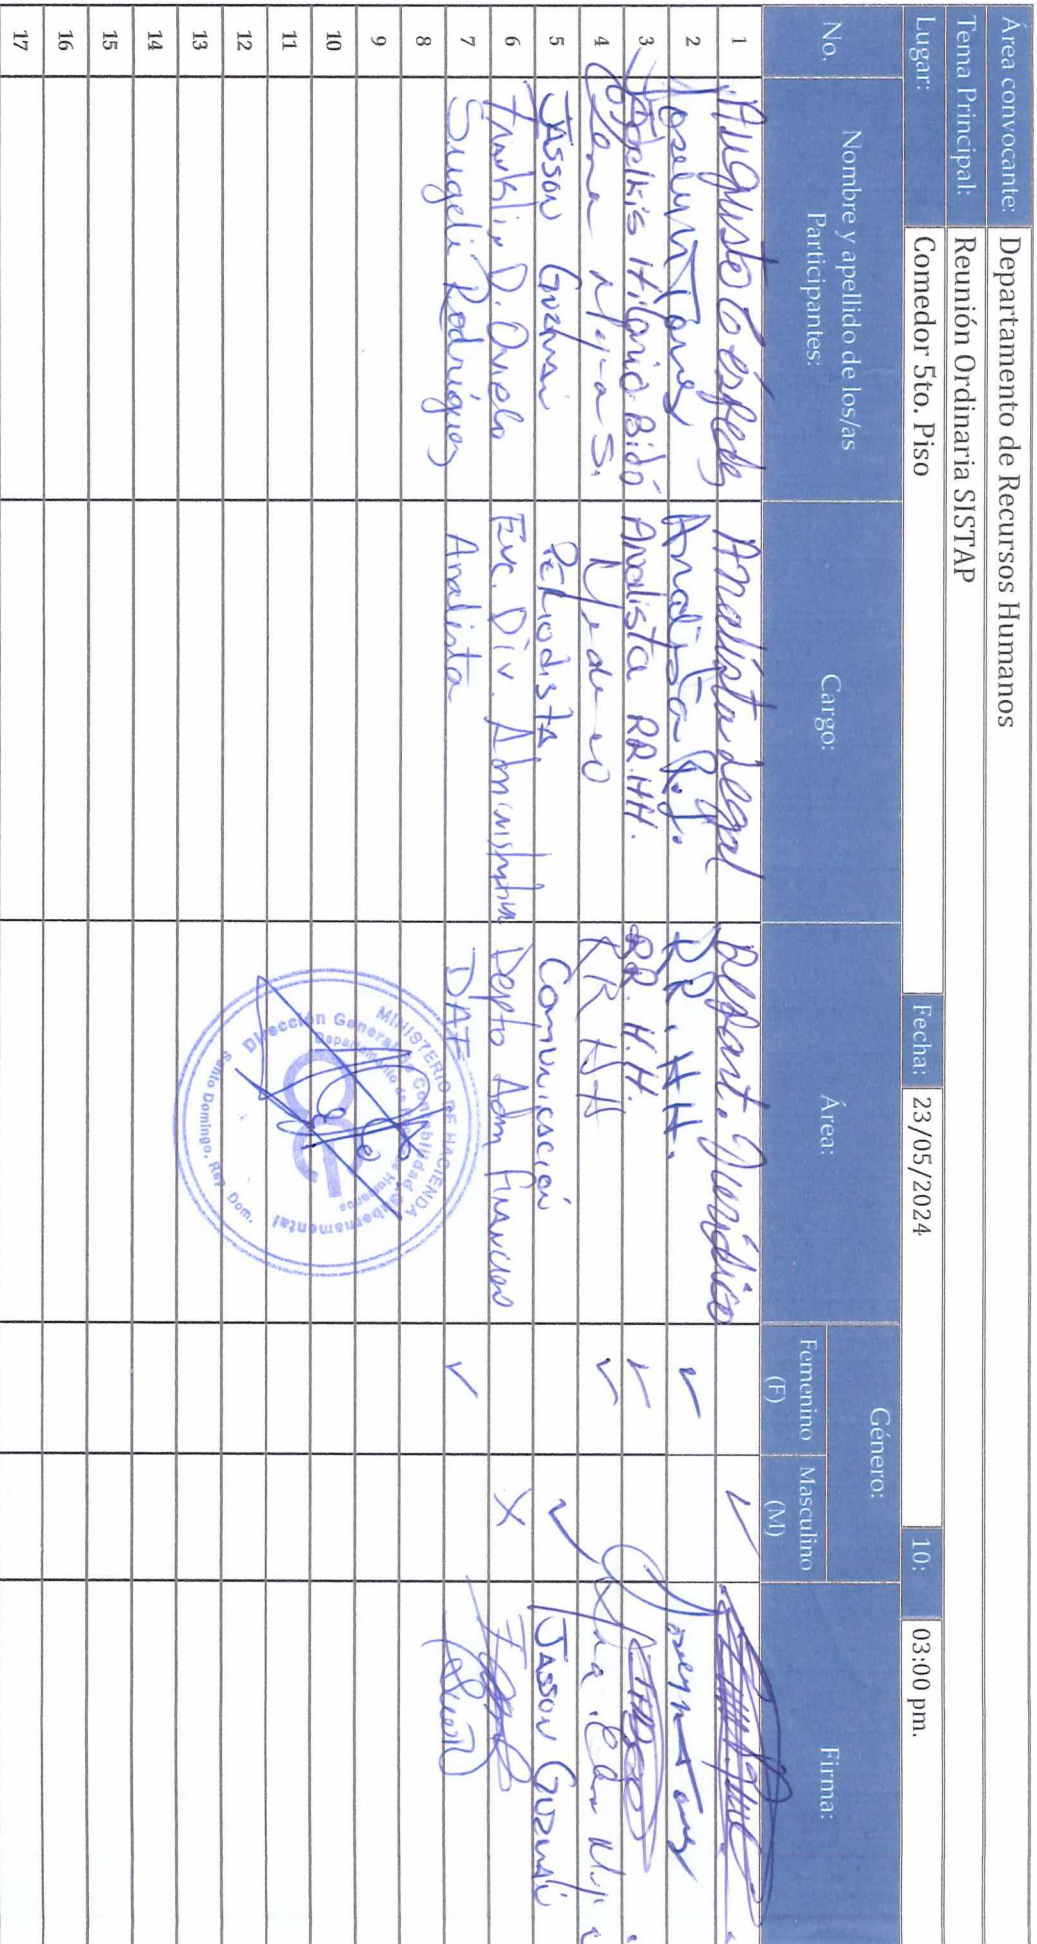 Área convocante: Departamento de Recursos Humanos
Tema Principal: Reunión Ordinaria SISTAP
Lugar: Comedor 5to. Piso Fecha: 23/05/2024 10: 03:00 pm.
No. Nombre y apellido de los/as Participantes: Cargo: Área: Género: Firma:
Femenino (F) Masculino (M)
1 Augusto Céspedes Analista Legal Depart. Jurídico ✓
2 Joselyn Torres Analista R.H. RR.HH. ✓ Joselyn Torres
3 Hilario Bidó Analista RR.HH. RR.HH. ✓
4 Elena Mejia S. RRHH ✓
5 JASSON GUZMÁN PERIODISTA Comunicación ✓ JASSON GUZMÁN
6 Franklin D. Enc. Div. Administrativa Depto Adm Financiero X
7 Sugeli Rodríguez Analista DAF ✓
8
9
10
11
12
13
14
15
16
17
MINISTERIO DE HACIENDA
Dirección General de Contabilidad Gubernamental
Departamento de Recursos Humanos
Santo Domingo, Rep. Dom.